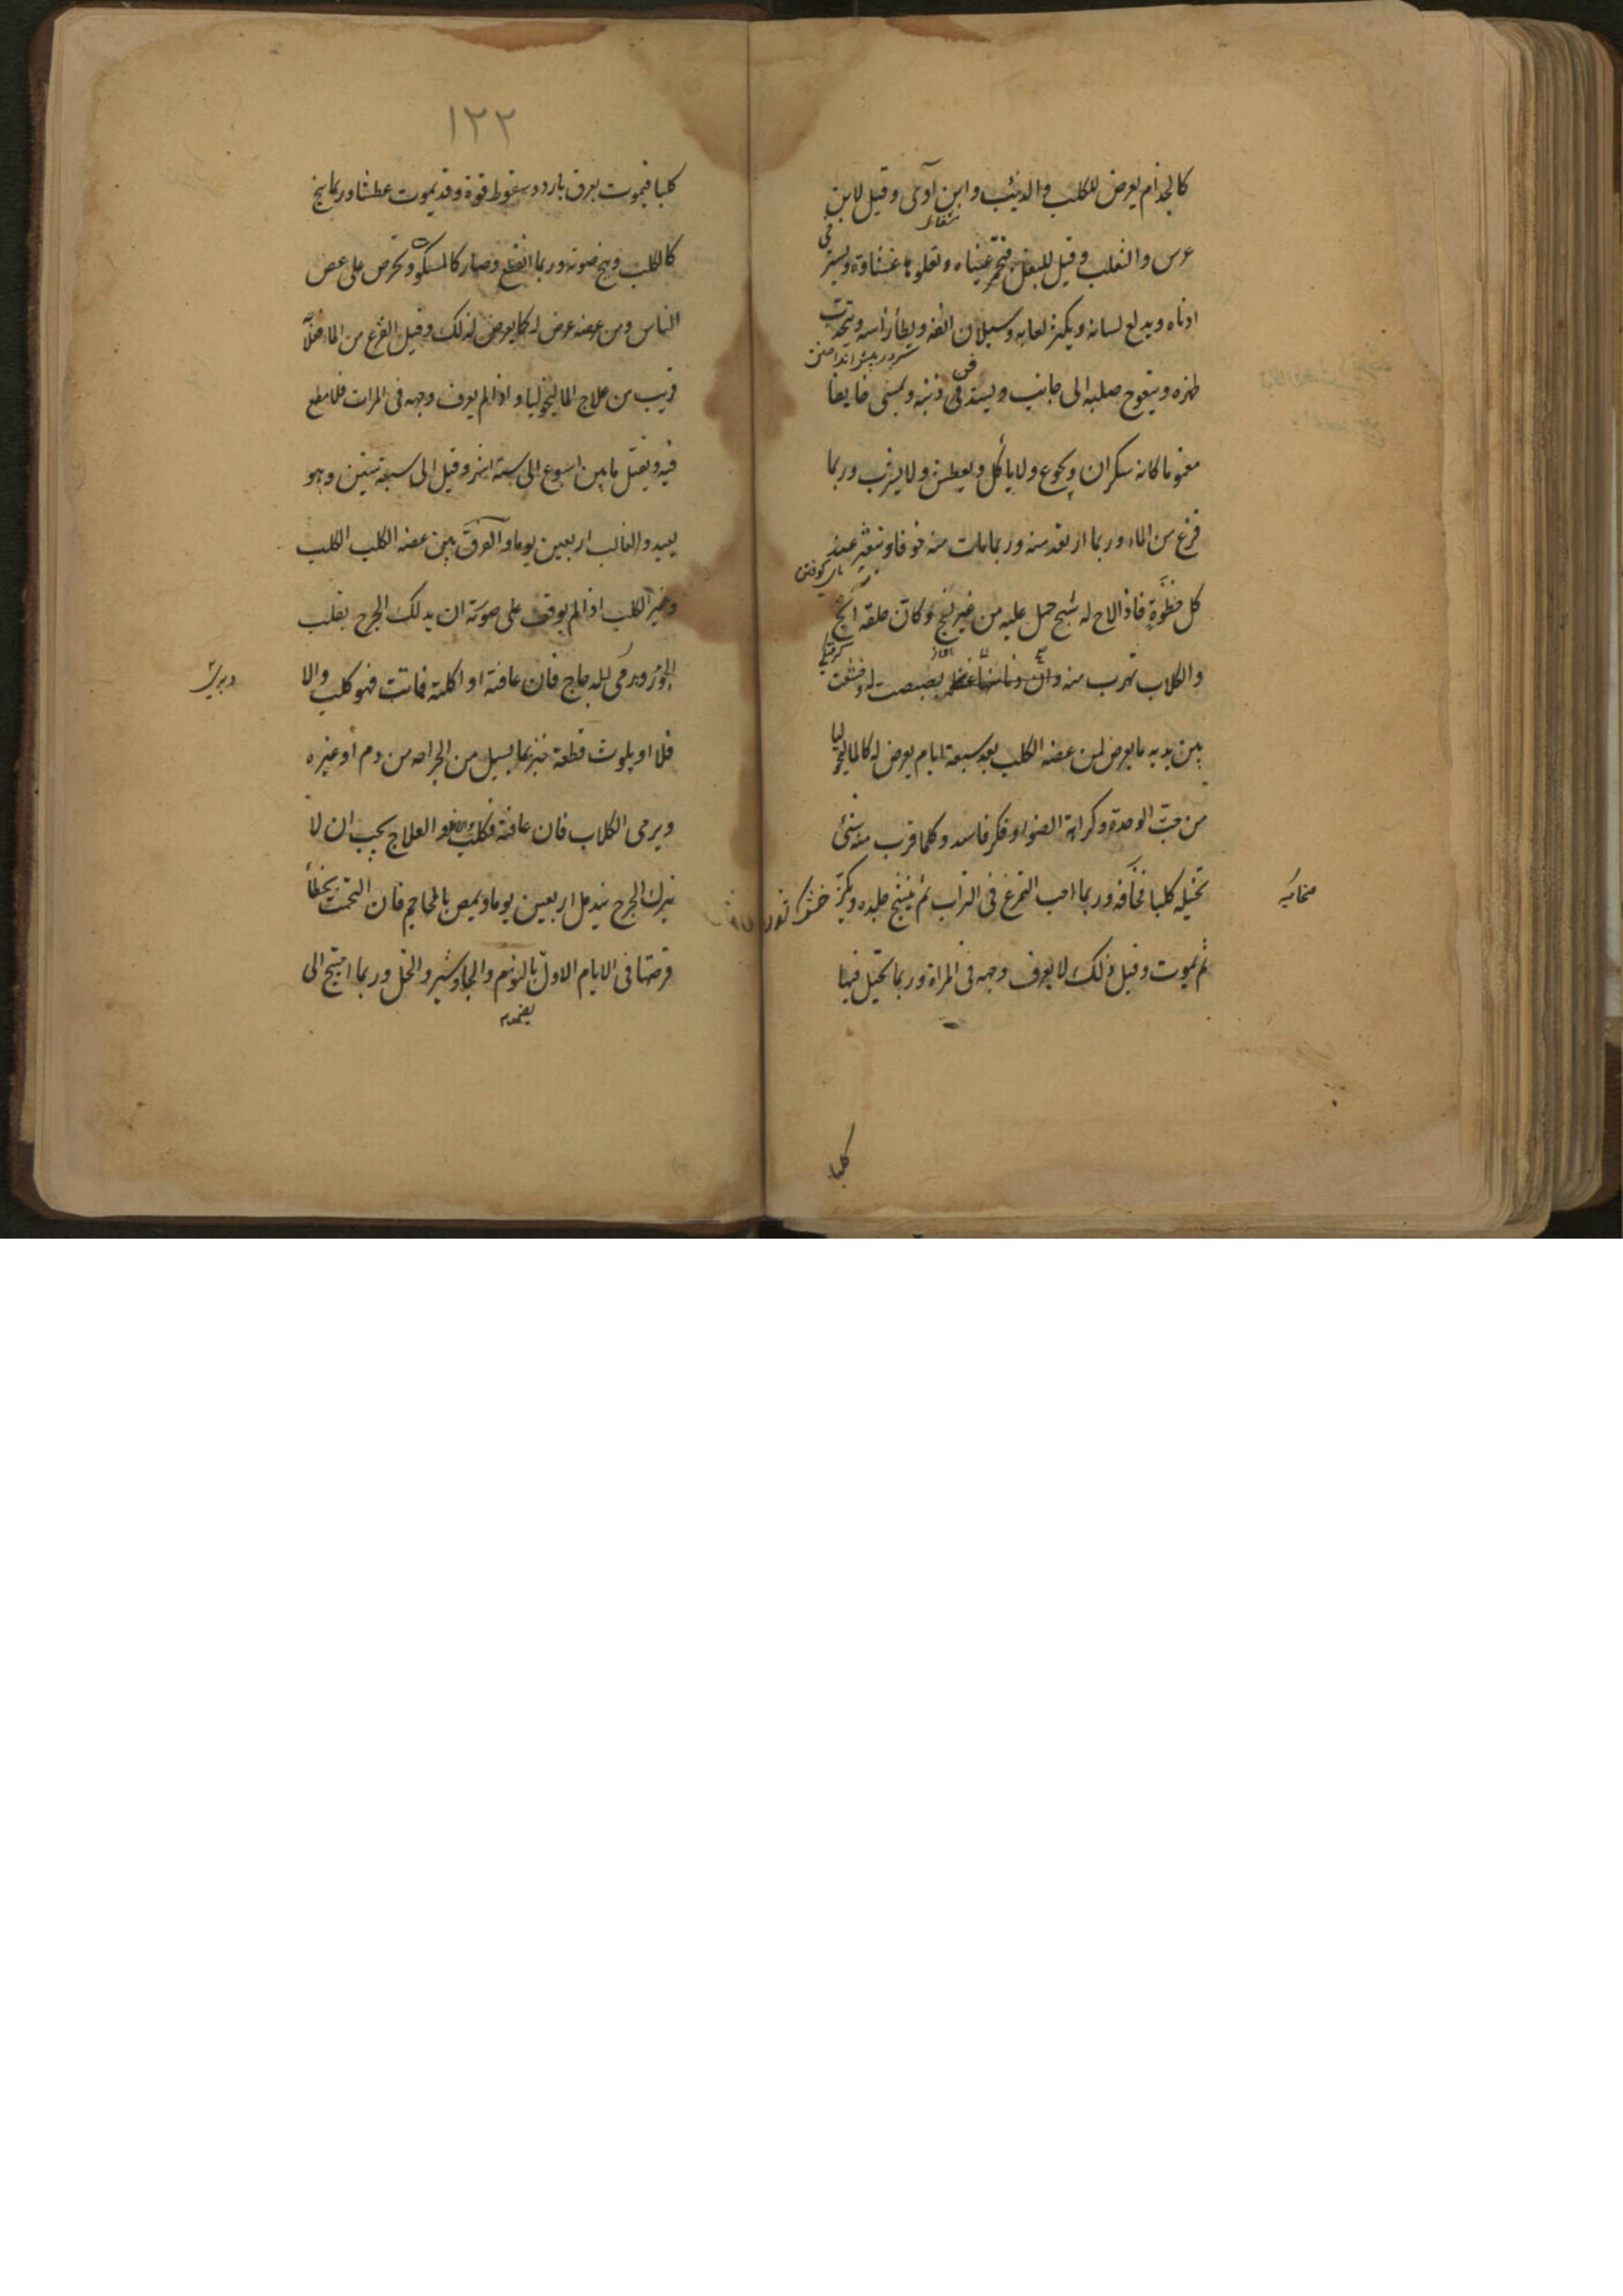 كالجذام يعرض للكلب والذئب وابن آوى وقيل لابن
شغال
عرس والثعلب وقيل للبغل فتحمر عيناه وتعلوها غشاوة ويسترخي
اذناه ويدلع لسانه ويكثر لعابه وسيلان انفه ويطأ رأسه ويتحدب
سر در پیش انداختن
ظهره ويتعوج صلبه الى جانب ويستدفي ذنبه ويمشى خايفا
مغموما كانه سكران ويجوع ولا يأكل ويعطش ولا يشرب وربما
فزع من الماء وربما ارتعد منه وربما مات منه خوفا ويتعثر عند
كل خطوة فاذا لاح له شبح حمل عليه من غير نبح وكان حلقه ابح
والكلاب تهرب منه وان بصبصت له وخشعت
بين يديه ما يعرض لمن عضه الكلب بعد سبعة ايام يعرض له كالماليخوليا
من حب الوحدة وكراهة الضوء وفكر فاسد وكلما قرب منه شئ
تخيله كلبا فخافه وربما احب التمرغ فى التراب ثم يتشنج جلده ويكزز
ثم يموت وقبل ذلك لا يعرف وجهه فى المراة وربما تخيل فيها
كلبا
١٢٢
كلبا فيموت بعرق بارد وسقوط قوة وقد يموت عطشا وربما نبح
كالكلب وبح صوته وربما انقطع وصار كالمسكوت وتحرص على عض
الناس ومن عضه عرض له كما يعرض لذلك وقيل الفزع من الماء فعلاجه
قريب من علاج الماليخوليا واذا لم يعرف وجهه فى المرات فلا مطمع
فيه ويقتل ما بين اسبوع الى ستة اشهر وقيل الى سبعة سنين وهو
بعيد والغالب اربعين يوما والفرق بين عضه الكلب الكلب
وغير الكلب اذا لم يوقف على صوته ان يدلك الجرح بقلب
الجوز ويرمى للدجاج فان عافته او اكلته فماتت فهو كلب والا
فلا او يلوث قطعة خبز بما يسيل من الجراحه من دم او غيره
ويرمى الكلاب فان عافته فكلب والعلاج يجب ان لا
يترك الجرح يندمل اربعين يوما ويمص بالمحاجم فان التحمت بخطأ
قرحتها فى الايام الاول بالثوم والجاوشير والخل وربما احتيج الى